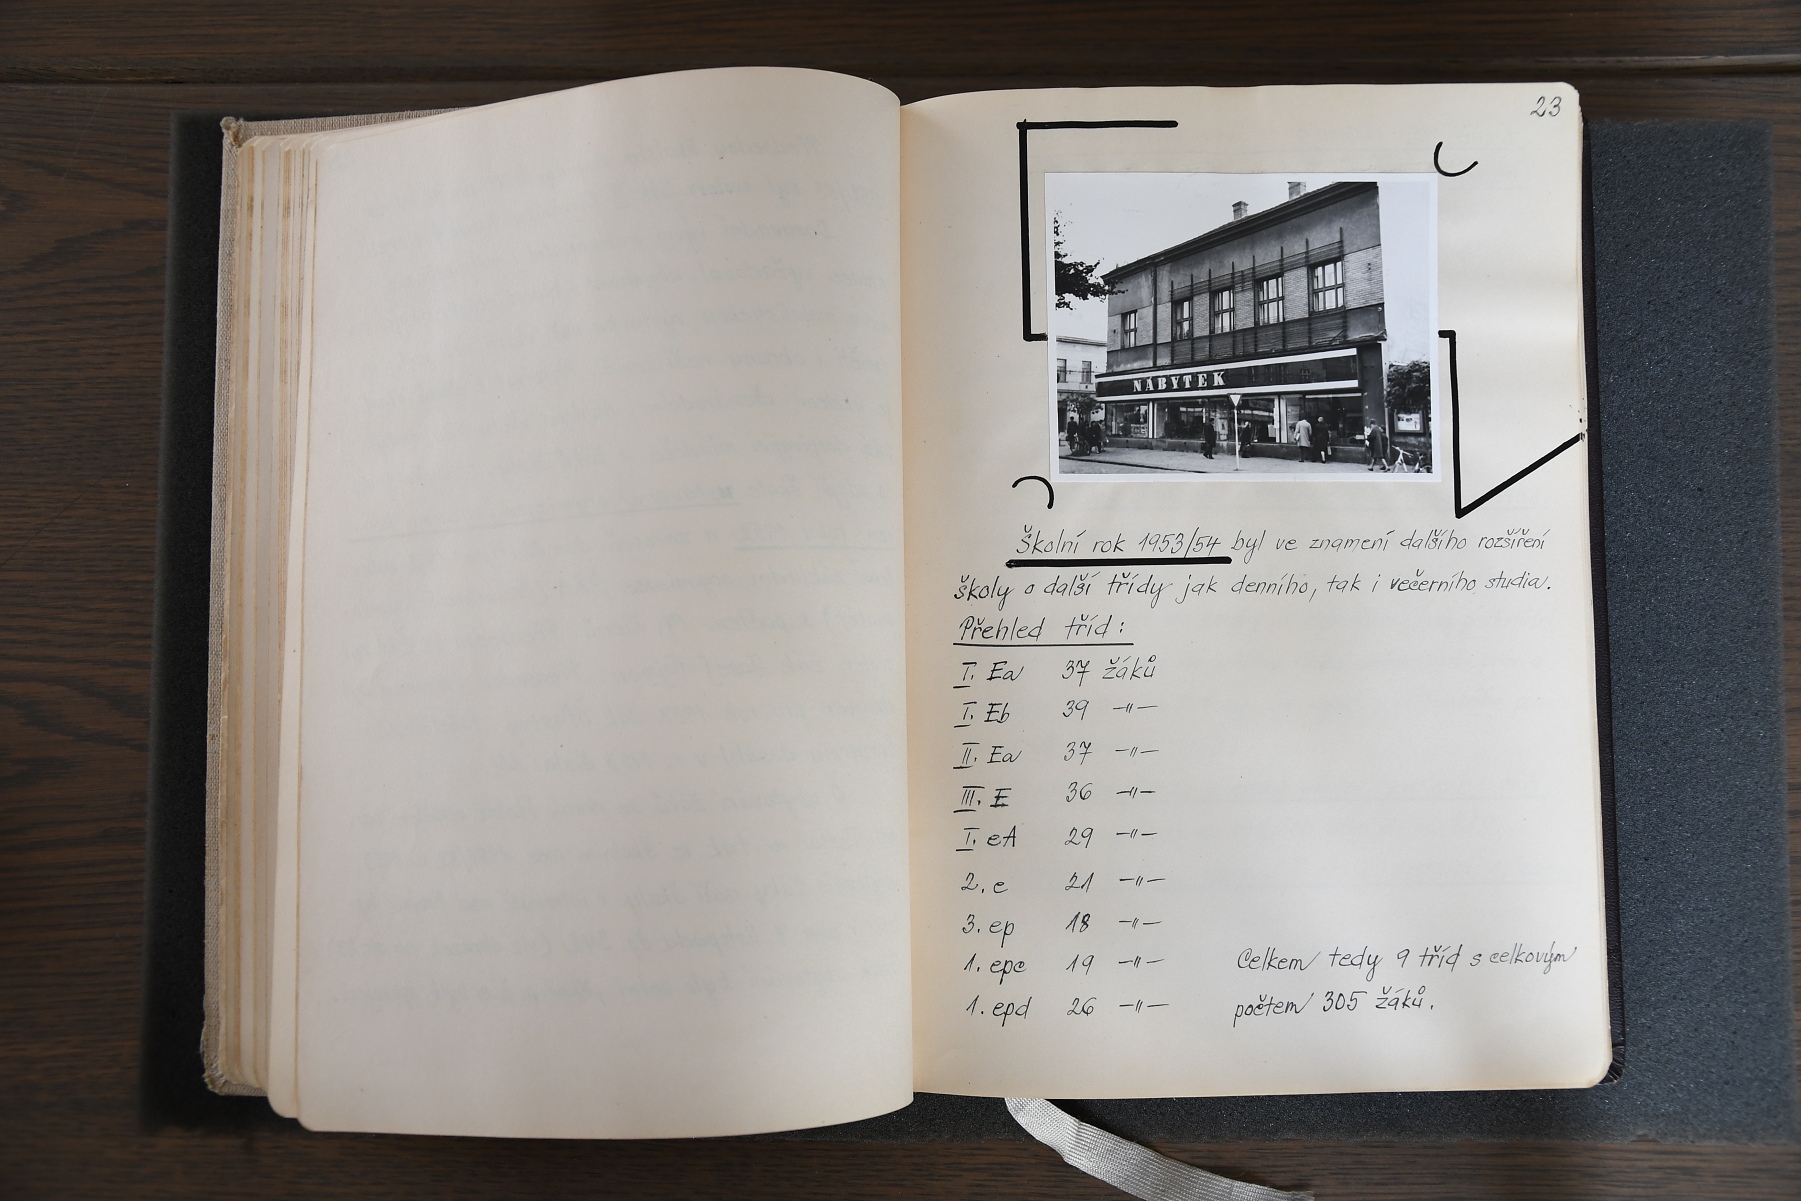 23
NÁBYTEK
Školní rok 1953/54 byl ve znamení dalšího rozšíření
školy o další třídy jak denního, tak i večerního studia.
Přehled tříd:
I. Ea 37 žáků
I. Eb 39 -"-
II. Ea 37 -"-
III. E 36 -"-
I. eA 29 -"-
2. e 21 -"-
3. ep 18 -"-
1. epc 19 -"- Celkem tedy 9 tříd s celkovým
1. epd 26 -"- počtem 305 žáků.